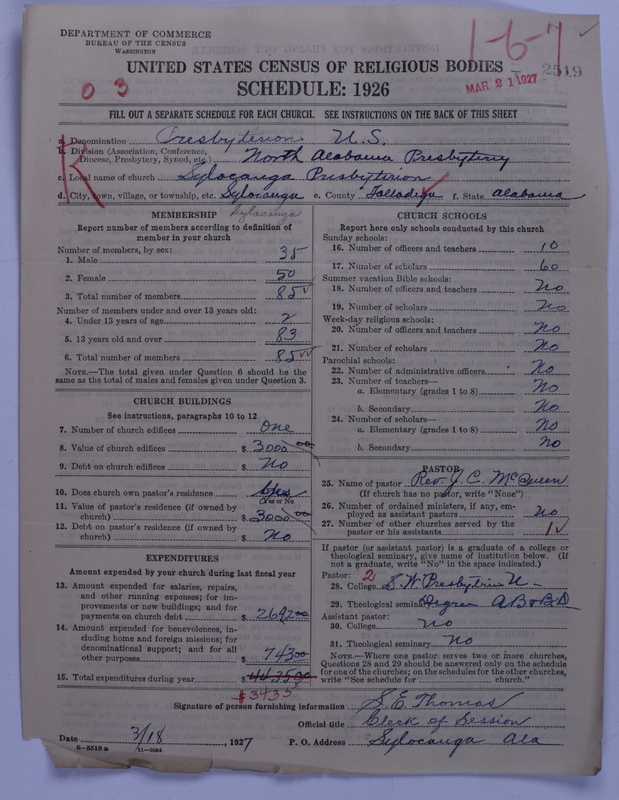 DEPARTMENT OF COMMERCE
BUREAU OF THE CENSUS
WASHINGTON
1-6-7
UNITED STATES CENSUS OF RELIGIOUS BODIES
SCHEDULE: 1926
MAR 21 1927
2519
03
FILL OUT A SEPARATE SCHEDULE FOR EACH CHURCH. SEE INSTRUCTIONS ON THE BACK OF THIS SHEET
a. Denomination Presbyterion U.S.
b. Division (Association, Conference, Diocese, Presbytery, Synod, etc.) North Alabama Presbytery
c. Local name of church Sylocauga Presbyterion
d. City, town, village, or township, etc. Sylocauga e. County Talladega f. State Alabama
Sylacauga
MEMBERSHIP
Report number of members according to definition of
member in your church
Number of members, by sex:
1. Male 35
2. Female 50
3. Total number of members 85
Number of members under and over 13 years old:
4. Under 13 years of age 2
5. 13 years old and over 83
6. Total number of members 85
NOTE.—The total given under Question 6 should be
same as the total of males and females given under Question 3.
CHURCH BUILDINGS
See instructions, paragraphs 10 to 12
7. Number of church edifices One
8. Value of church edifices $ 3000 00
9. Debt on church edifices $ No
10. Does church own pastor's residence Yes
Yes or No
11. Value of pastor's residence (if owned by
church) $ 3000 00
12. Debt on pastor's residence (if owned by
church) $ No
EXPENDITURES
Amount expended by your church during last fiscal year
13. Amount expended for salaries, repairs,
and other running expenses; for im-
provements or new buildings; and for
payments on church debt $ 2692 00
14. Amount expended for benevolences, in-
cluding home and foreign missions; for
denominational support; and for all
other purposes $ 743 00
15. Total expenditures during year $
$3435
CHURCH SCHOOLS
Report here only schools conducted by this church
Sunday schools:
16. Number of officers and teachers 10
17. Number of scholars 60
Summer vacation Bible schools:
18. Number of officers and teachers No
19. Number of scholars No
Week-day religious schools:
20. Number of officers and teachers No
21. Number of scholars No
Parochial schools:
22. Number of administrative officers No
23. Number of teachers—
a. Elementary (grades 1 to 8) No
b. Secondary No
24. Number of scholars—
a. Elementary (grades 1 to 8) No
b. Secondary No
PASTOR
25. Name of pastor Rev. J. C. McQueen
(If church has no pastor, write "None")
26. Number of ordained ministers, if any, em-
ployed as assistant pastors No
27. Number of other churches served by the
pastor or his assistants 1
If pastor (or assistant pastor) is a graduate of a college or
theological seminary, give name of institution below. (If
not a graduate, write "No" in the space indicated.)
Pastor: 2
28. College S. W. Presbytrin U-
29. Theological seminary Degree AB & BD
Assistant pastor:
30. College No
31. Theological seminary No
NOTE.—Where one pastor serves two or more churches,
Questions 28 and 29 should be answered only on the schedule
for one of the churches; on the schedules for the other churches,
write "See schedule for ........ church."
Signature of person furnishing information S. E. Thomas
Official title Clerk of Session
Date 3/18, 1927 P. O. Address Sylocauga Ala
8-5518 a 11-9084